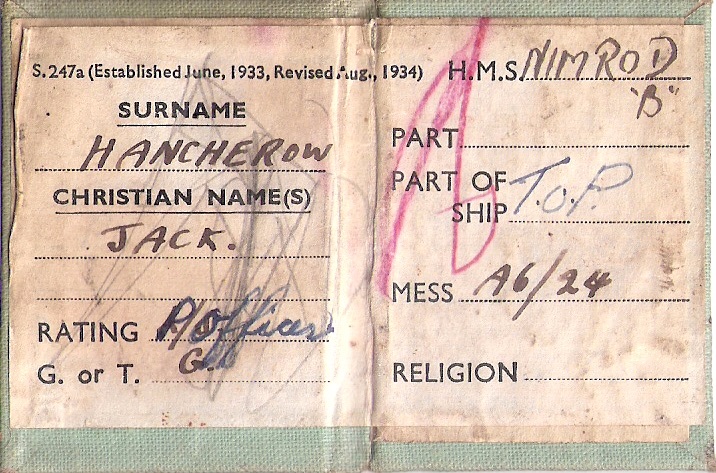 S.247a (Established June, 1933, Revised Aug., 1934)
SURNAME
HANCHEROW
CHRISTIAN NAME(S)
JACK.
RATING P/Officer
G. or T. G.
H.M.S. NIMROD
"B"
PART
PART OF
SHIP T.O.P.
MESS A6/24
RELIGION
A